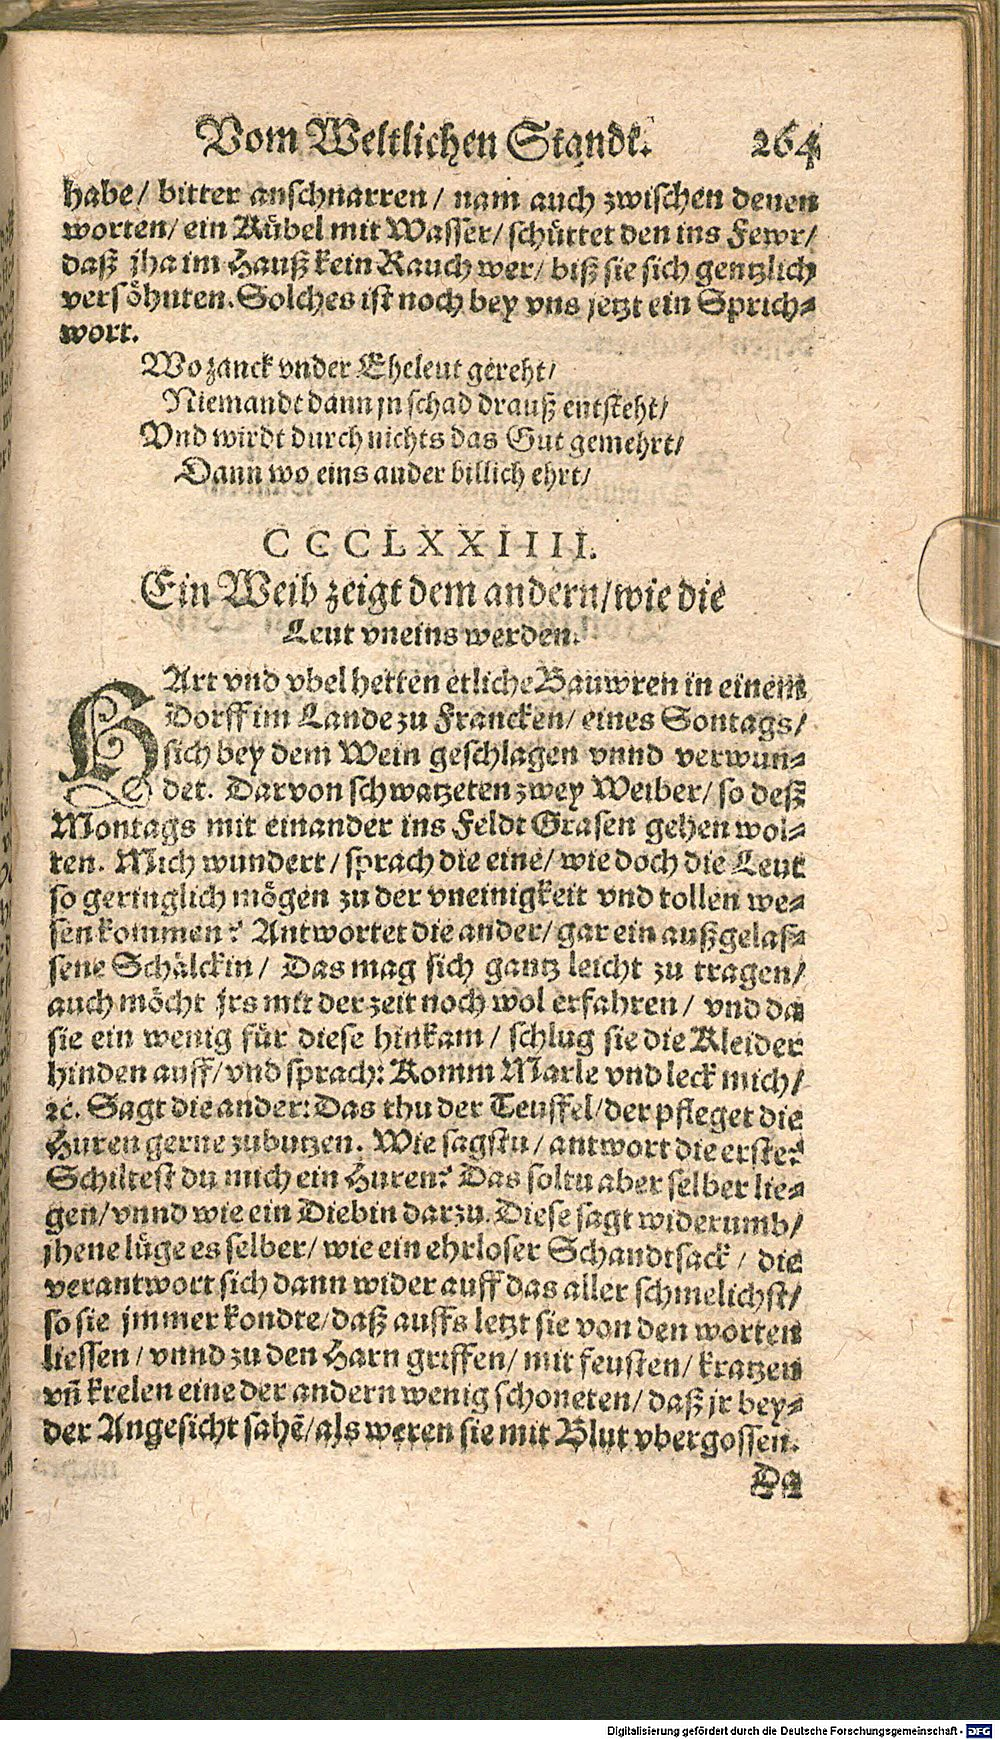 Vom Weltlichen Standt. 264
habe/ bitter anschnarren/ nam auch zwischen denen
worten/ ein Kübel mit Wasser/ schüttet den ins Fewr/
daß jha im Hauß kein Rauch wer/ biß sie sich gentzlich
versöhnten. Solches ist noch bey vns jetzt ein Sprich-
wort.
Wo zanck vnder Eheleut gereht/
Niemandt dann jn schad drauß entsteht/
Vnd wirdt durch nichts das Gut gemehrt/
Dann wo eins ander billich ehrt/
CCCLXXIIII.
Ein Weib zeigt dem andern/ wie die
Leut vneins werden.
HArt vnd vbel hetten etliche Bauwren in einem
Dorff im Lande zu Francken/ eines Sontags/
sich bey dem Wein geschlagen vnnd verwun-
det. Darvon schwatzeten zwey Weiber/ so deß
Montags mit einander ins Feldt Grasen gehen wol-
ten. Mich wundert/ sprach die eine/ wie doch die Leut
so geringlich mögen zu der vneinigkeit vnd tollen we-
sen kommen? Antwortet die ander/ gar ein außgelas-
sene Schälckin/ Das mag sich gantz leicht zu tragen/
auch möcht jrs mit der zeit noch wol erfahren/ vnd da
sie ein wenig für diese hinkam/ schlug sie die Kleider
hinden auff/ vnd sprach: Komm Marle vnd leck mich/
ꝛc. Sagt die ander: Das thu der Teuffel/ der pfleget die
Huren gerne zubutzen. Wie sagstu/ antwort die erste?
Schiltest du mich ein Huren? Das soltu aber selber lie-
gen/ vnnd wie ein Diebin darzu. Diese sagt widerumb/
jhene lüge es selber/ wie ein ehrloser Schandtsack/ die
verantwort sich dann wider auff das aller schmelichst/
so sie jmmer kondte/ daß auffs letzt sie von den worten
liessen/ vnnd zu den Harn griffen/ mit feusten/ kratzen
vñ krelen eine der andern wenig schoneten/ daß jr bey-
der Angesicht sahẽ/ als weren sie mit Blut vbergossen.
Da
Digitalisierung gefördert durch die Deutsche Forschungsgemeinschaft - DFG